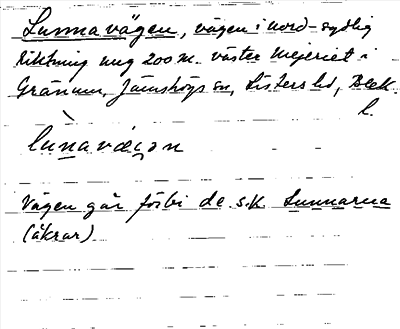 Lunnavägen, vägen i nord-sydlig
riktning ung 200 m. väster mejeriet i
Gränum, Jämshögs sn, Listers hd, Blek.
l.
lùnavägən
Vägen går förbi de s.k. Lunnarna
(åkrar)